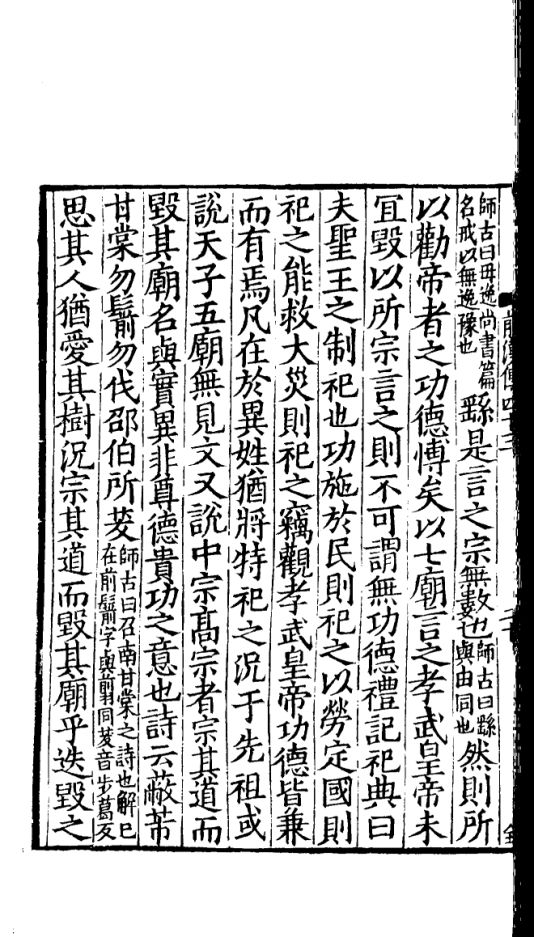 師古曰毋逸尚書篇名戒以無逸豫也繇是言之宗無數也師古曰繇與由同也然則所
以勸帝者之功德博矣以七廟言之孝武皇帝未
宜毀以所宗言之則不可謂無功德禮記祀典曰
夫聖王之制祀也功施於民則祀之以勞定國則
祀之能救大災則祀之竊觀孝武皇帝功德皆兼
而有焉凡在於異姓猶將特祀之況于先祖或
說天子五廟無見文又說中宗髙宗者宗其道而
毀其廟名與實異非尊德貴功之意也詩云蔽芾
甘棠勿鬋勿伐邵伯所茇師古曰召南甘棠之詩也解已在前鬋字與翦同茇音步葛反
思其人猶愛其樹況宗其道而毀其廟乎迭毀之